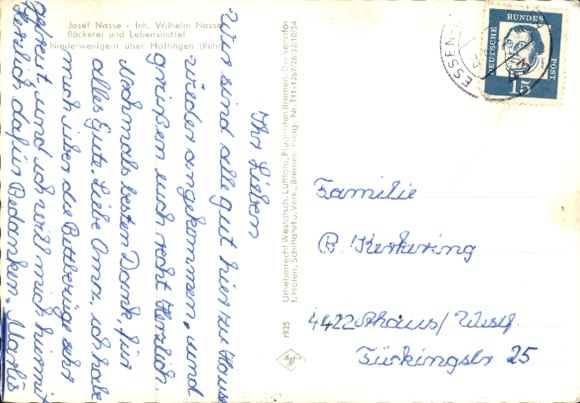 Josef Nasse - Inh. Wilhelm Nasse
Bäckerei und Lebensmittel
Niederwenigern über Hattingen (Ruhr)
Ihr Lieben
Wir sind alle gut hier zu Haus
wieder angekommen, und
grüßen euch recht Herzlich.
nochmals besten Dank, für
alles Gute. Liebe Oma, ich habe
mich über die Bettbezüge sehr
gefreut und ich will mich hiermit
Herzlich dafür Bedanken
1925
Urheberrecht Westdtsch. Luftfoto, Flughafen Bremen. Der Senator
f. Häfen, Schiffahrt u. Verk., Bremen, Freig. Nr. T11-126/726/32/10/54
Agfa
ESSEN
DEUTSCHE BUNDESPOST
15
Familie
B. Kerkering
4422 Ahaus/Westf
25